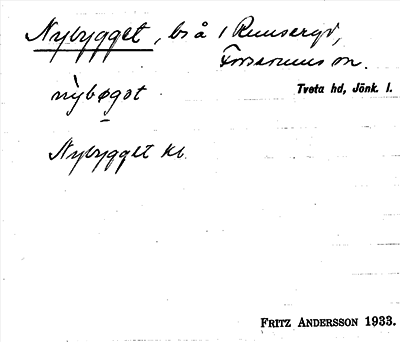 Nybygget, bs å 1 Runseryd,
Forserums sn.
Tveta hd, Jönk. l.
nỳbøgət
Nybygget kb.
FRITZ ANDERSSON 1933.